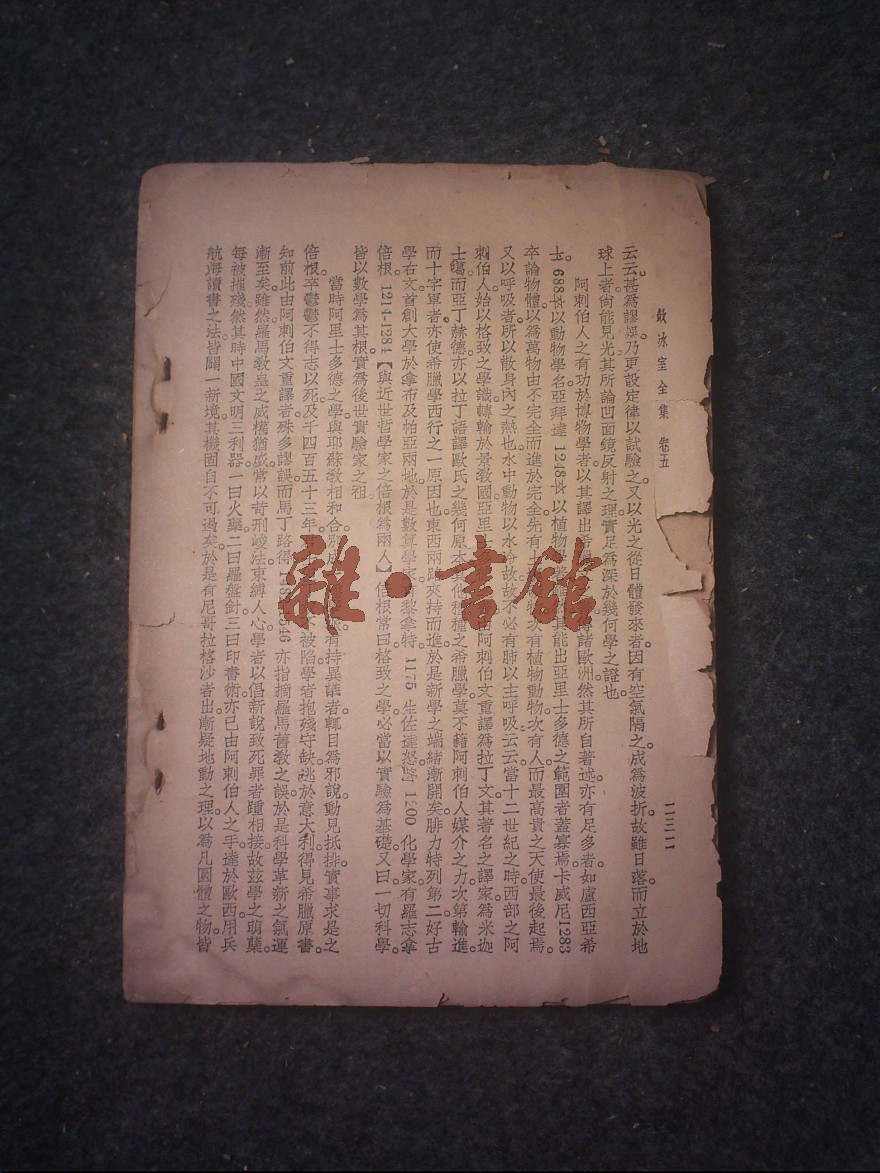 飲冰室全集 卷五
二三二
云云。甚爲謬誤。乃更設定律以試驗之。又以光之從日體發來者。因有空氣隔之。成爲波折。故雖日落。而立於地
球上者。尙能見光。其所論凹面鏡反射之理。實足爲深於幾何學之證也。
阿剌伯人之有功於博物學者。以其譯出希 諸歐洲。然其所自著述。亦有足多者。如盧西亞希
士。688卒以動物學名。亞拜達1248卒以植物學 其能出亞里士多德之範圍者。蓋寡焉。卡威尼1283
卒論物體。以爲萬物由不完全而進於完全。先有土 次有植物動物。次有人。而最高貴之天使最後起焉。
又以呼吸者。所以散身內之熱也。水中動物。以水冷故。故不必有肺以主呼吸云云。當十二世紀之時。西部之阿
剌伯人。始以格致之學識。轉輸於景敎國。亞里士 阿剌伯文重譯爲拉丁文。其著名之譯家。爲米迦
士喝。而亞丁赫德。亦以拉丁語譯歐氏之幾何原本。其他種種之希臘學。莫不藉阿剌伯人媒介之力。次第輸進。
而十字軍者。亦使希臘學西行之一原因也。東西兩 夾持而進。於是新學之端緒漸開矣。腓力特列第二。好古
學右文。首創大學於拿布及帕亞兩地。於是數算學家 黎拿特。1175生佐達怒 1200化學家有羅志拿
倍根。1214-1284【與近世哲學家之倍根爲兩人】倍根常曰。格致之學。必當以實驗爲基礎。又曰。一切科學。
皆以數學爲其根。實爲後世實驗家之祖。
當時阿里士多德之學。與耶蘇敎相和合。別成 有持異議者。輒目爲邪說。動見抵排。實事求是之
倍根。卒鬱鬱不得志以死。及千四百五十三年。 被陷。學者抱殘守缺。逃於意大利。得見希臘原書。
知前此由阿剌伯文重譯者。殊多謬誤。而馬丁路得 1546 亦指摘羅馬舊敎之誤。於是科學革新之氣運
漸至矣。雖然。羅馬敎皇之威權猶盛。常以苛刑峻法。束縛人心。學者以倡新說致死罪者。踵相接。故茲學之萌蘗。
每被摧殘。然其時中國文明三利器。一曰火藥。二曰羅盤針。三曰印書術。亦已由阿剌伯人之手。達於歐西。用兵
航海讀書之法。皆闢一新境。其機固自不可遏矣。於是有尼哥拉格沙者出。漸疑地動之理。以爲凡圓體之物。皆
雜·書館